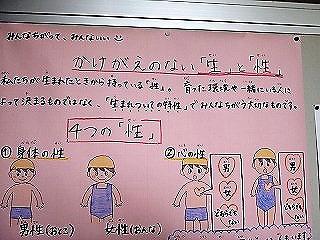 みんなちがって、みんないい
かけがえのない「生」と「性」
私たちが生まれたときから持っている「性」。育った環境や一緒にいる人に
よって決まるものではなく、「生まれついての特性」でみんなちがう大切なものです。
4つの「性」
①身体の性
②心の性
男性(おとこ)
女性(おんな)
男
女
どちらでもない
男
女